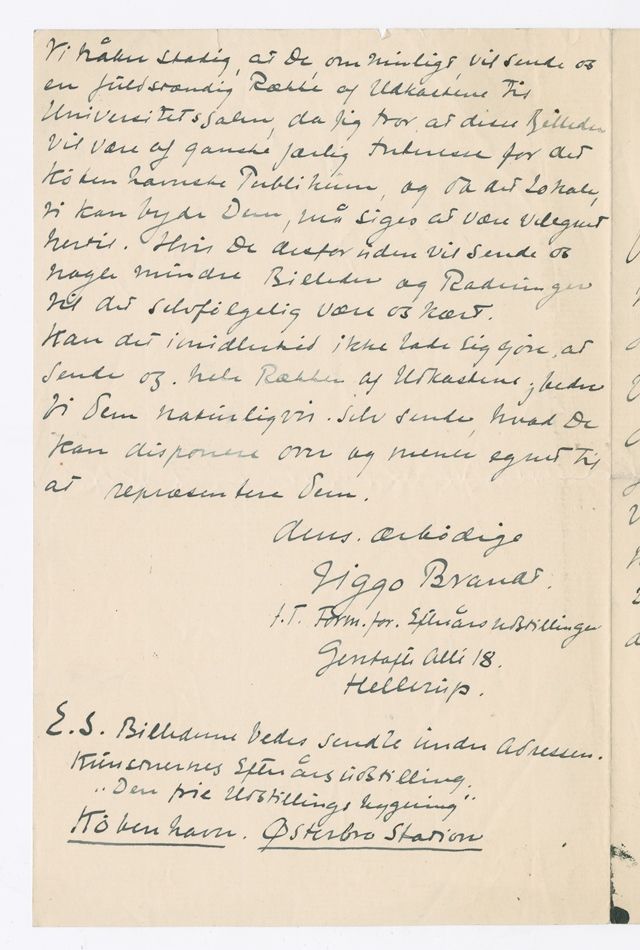 Vi håber stadig, at De om muligt vil sende os
en fuldstændig Række af Udkastene til
Universitetssalen, da jeg tror at disse Billeder
vil være af ganske særlig Interesse for det
Københavnske Publikum, og da det Lokale,
vi kan byde Dem, må siges at være velegnet
hertil. Hvis De desforuden vil sende os
nogle mindre Billeder og Raderinger
vil det selvfølgelig være os kært.
Kan det imidlertid ikke lade sig gøre, at
sende os hele Rækken af Udkastene, beder
vi Dem naturligvis selv sende, hvad De
kan disponere over og mener egnet til
at repræsentere Dem.
Deres ærbødige
Viggo Brandt.
f.T. Form. for. Efterårsudstillingen
Gentofte Allé 18.
Hellerup.
E.S. Billederne bedes sendte under Adressen.
Kunstnernes Efterårsudstilling.
"Den frie Udstillings bygning"
København. Østerbro Stadion